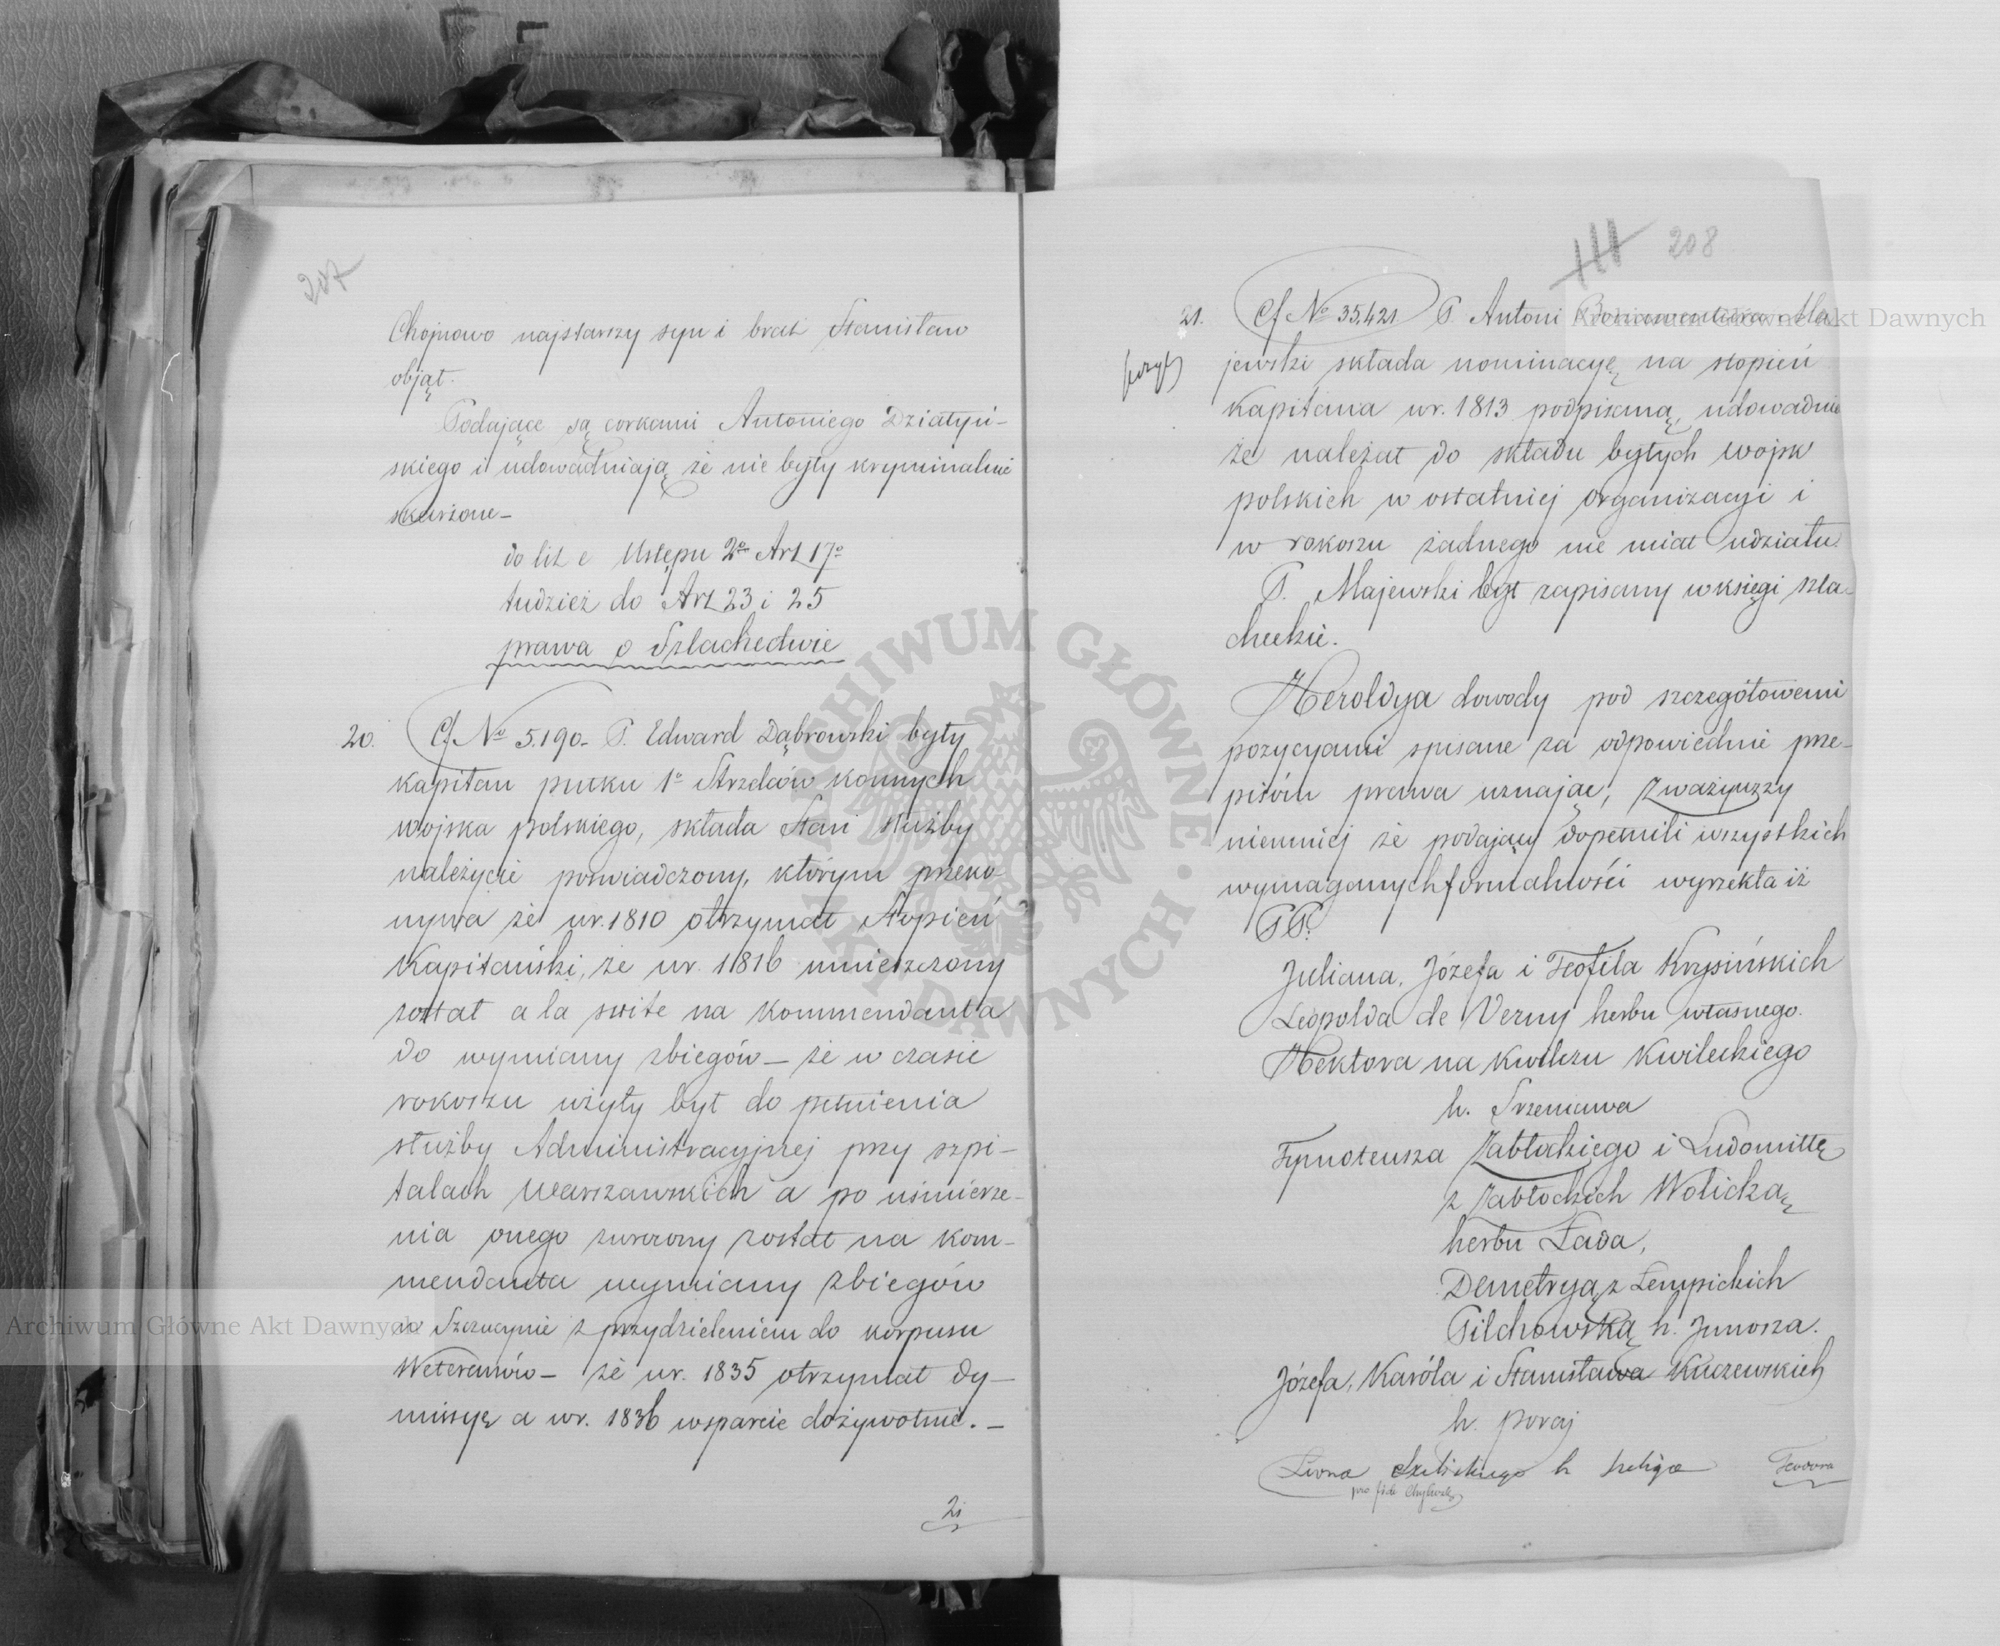 207
Chojnowo najstarszy syn i brat Stanisław
objął.
Podające są corkami Antoniego Działyń-
skiego i udowadniają że nie były kryminalnie
skarżone -
do lit e Ustępu 2º Art 17º
tudzież do Art 23 i 25
prawa o Szlachectwie
20. Cf Nº 5.190 - P. Edward Dąbrowski były
kapitan pułku 1º Strzelców konnych
wojska polskiego, składa Stan służby
należycie poświadczony, którym przeko
nywa że w r. 1810 otrzymał Stopień
Kapitański, że w r. 1816 umieszczony
został a la suite na Kommendanta
do wymiany zbiegów - że w czasie
rokoszu użyty był do pełnienia
służby Administracyjnej przy szpi-
talach Warszawskich a po uśmierze-
nia onego zwrócony został na kom-
mendanta wymiany zbiegów
w Szczucynie z przydzieleniem do korpusu
Weteranów - że w r. 1835 otrzymał dy-
missyę a w r. 1836 wsparcie dożywotnie. -
21
208
21. Cf Nº 35,421 P Antoni Bonawentura Ma
jewski składa nominacyę na stopień
Kapitana w r. 1813 podpisaną, udowadnia
że należał do składu byłych wojsk
polskich w ostatniej organizacyi i
w rokoszu żadnego nie miał udziału.
P. Majewski był zapisany w księgi szla-
checkie.
Heroldya dowody pod szczegółowemi
pozycyami spisane za odpowiednie prze-
pisom prawa uznając, Zważywszy
niemniej że podający dopełnili wszystkich
wymaganych formalności wyrzekła iż
PP.
Juliana, Józefa i Teofila Krysińskich
Leopolda de Verny herbu własnego.
Hektora na Kwilczu Kwileckiego
h. Szreniawa
Tymoteusza Zabłockiego i Ludomiłłę
z Zabłockich Wolicką
herbu Łada,
Demetryą z Łempickich
Pilchowską h. Junosza.
Józefa, Karóla i Stanisława Kuczewskich
h. Poraj
Leona h Szeliga Teodora
pro fide
Archiwum Główne Akt Dawnych
Archiwum Główne Akt Dawnych
ARCHIWUM GŁÓWNE AKT DAWNYCH